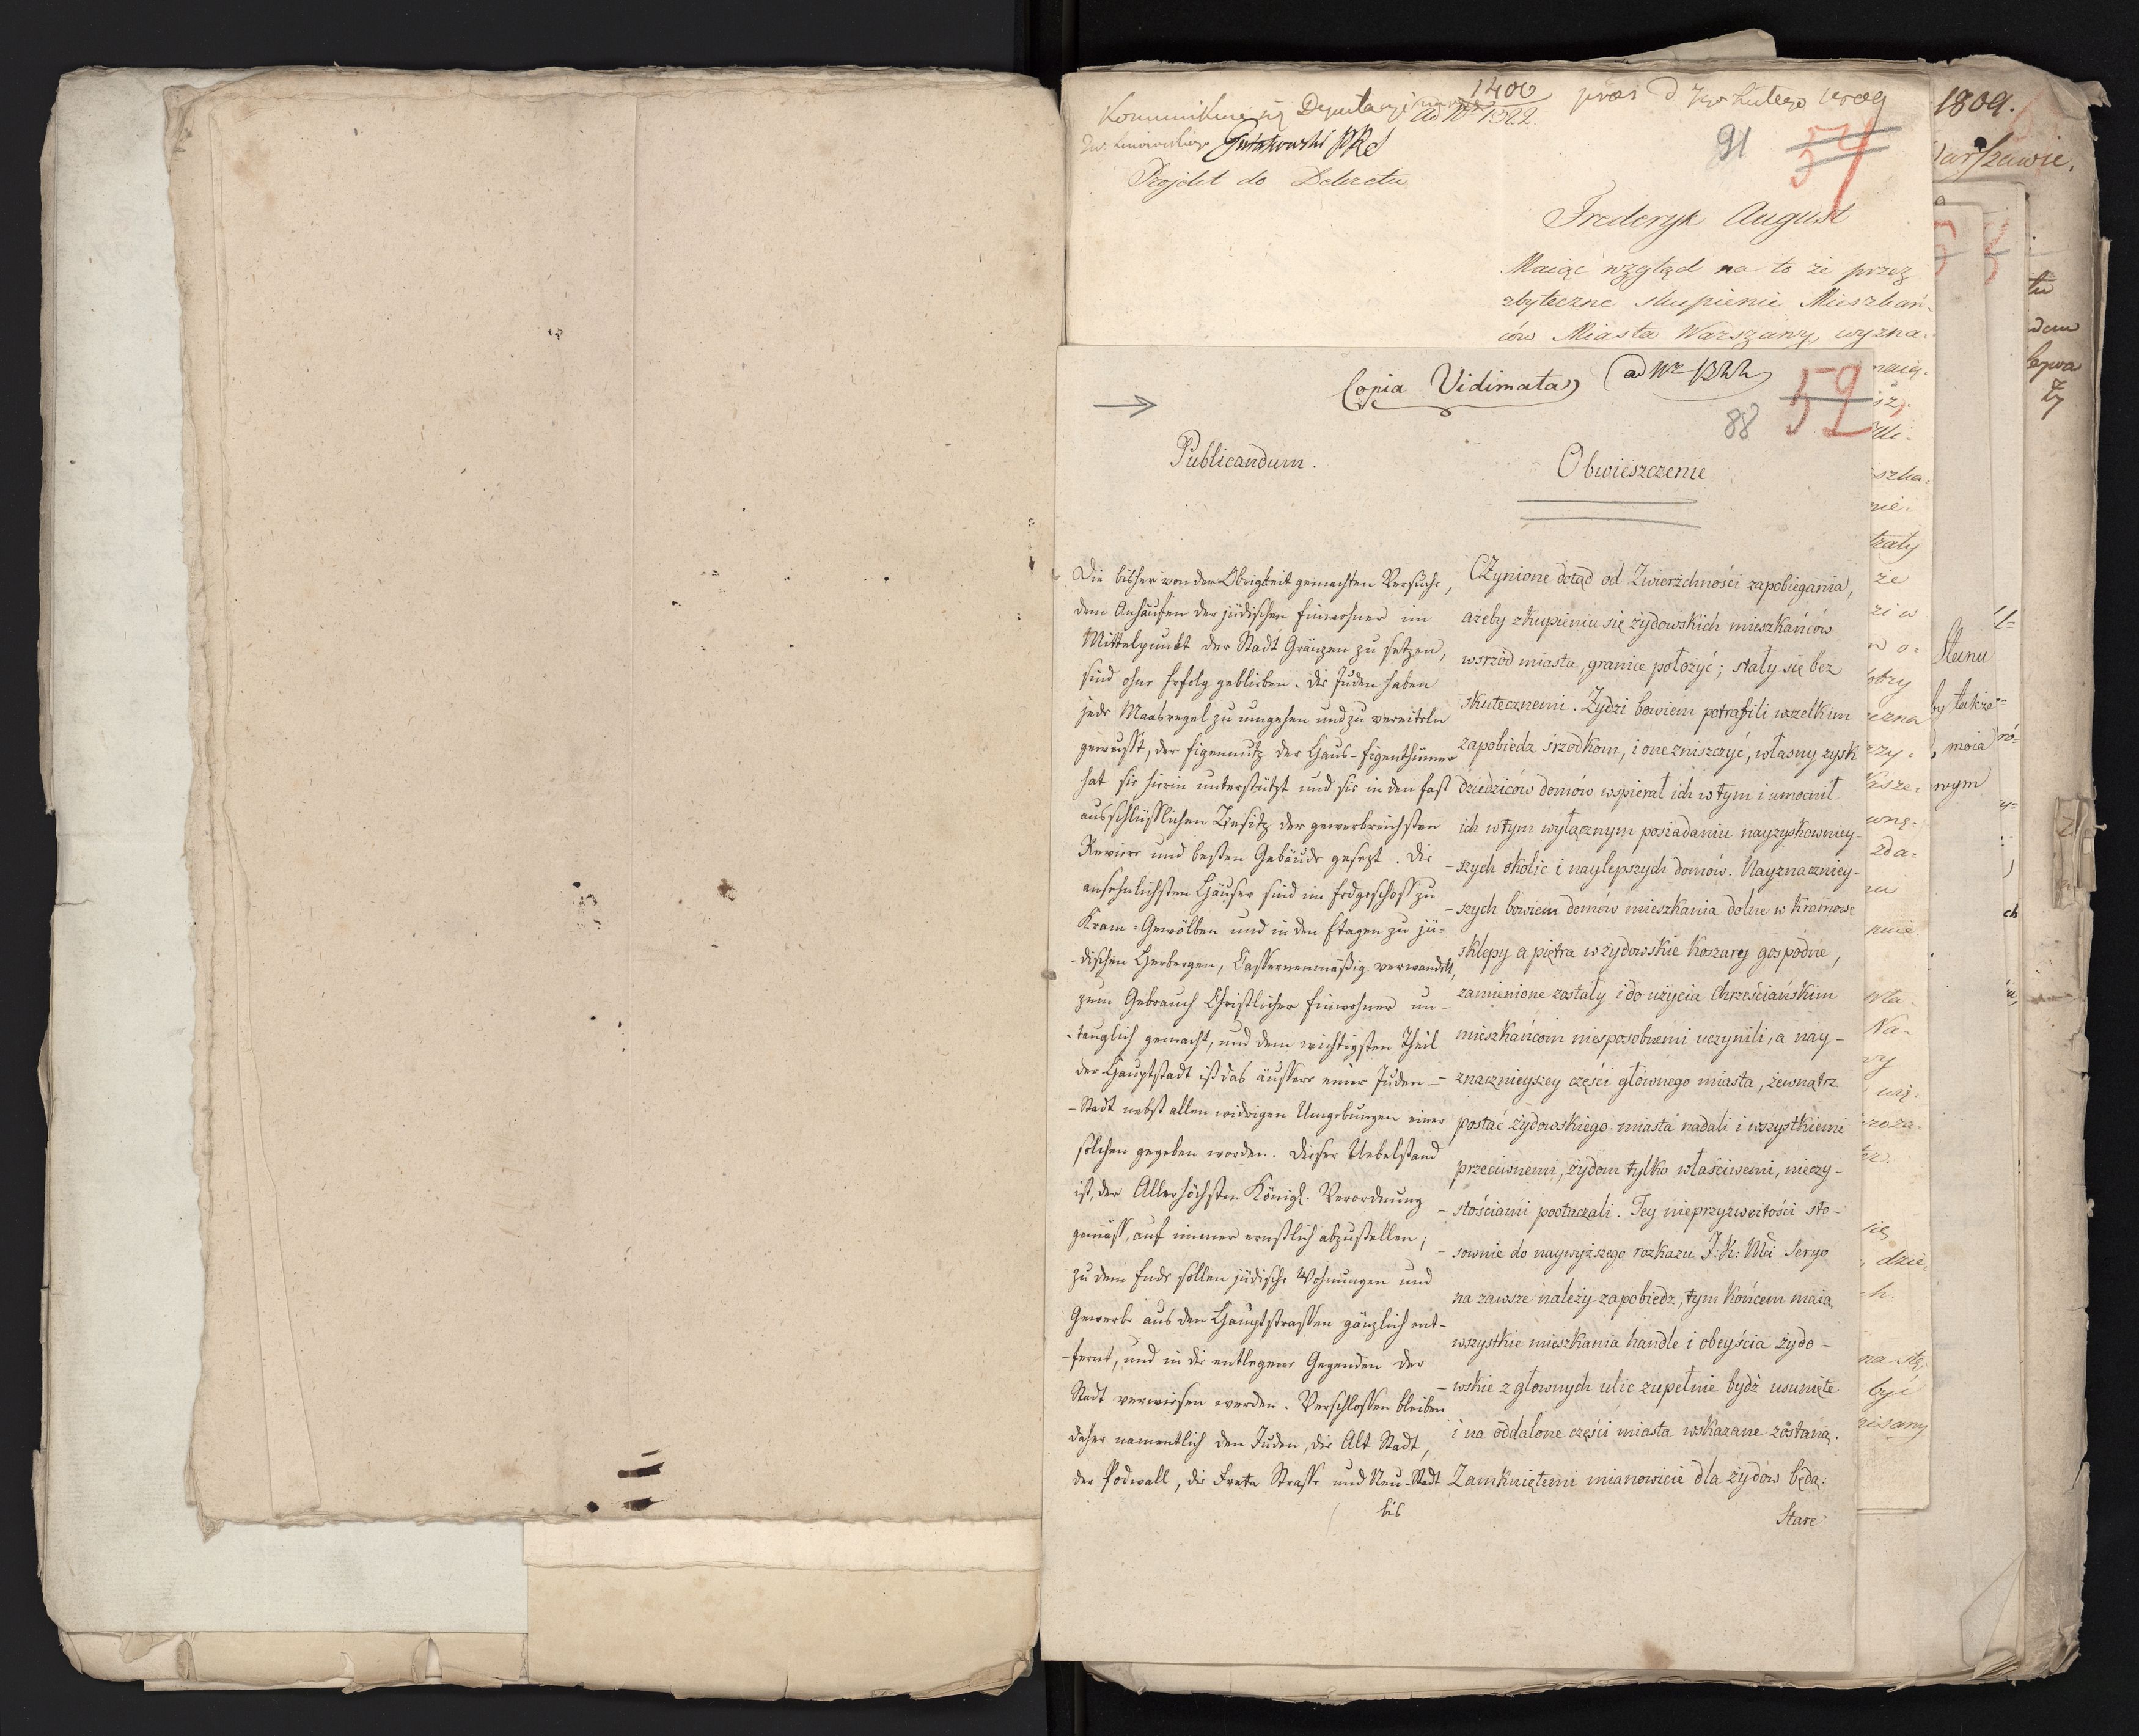 1400
Kommunikuie się Deputacyi ad Nr 1322. pras d Lutego 1809
Gutakowski PRS
91 57
Projekt do Dekretu
Frederyk August
Maiąc wzgląd na to że przez
zbyteczne skupienie Mieszkań-
ców Miasta Warszawy, wyzna-
Copia Vidimata ad Nr 1322
59
88
Publicandum.
Die bisher von der Obrigkeit gemachten Versuche,
dem Anhäufen der jüdischen Einwohner im
Mittelpunkt der Stadt Gränzen zu setzen,
sind ohne Erfolg geblieben. Die Juden haben
jede Maasregel zu umgehen und zu vereiteln
gewusst, der Eigennutz der Haus-Eigenthümer
hat sie hierin unterstützt und sie in den fast
ausschlüsslichen Besitz der gewerbreichsten
Reviere und besten Gebäude gesezt. Die
ansehnlichsten Häuser sind im Erdgeschoss zu
Kram-Gewölben und in den Etagen zu jü-
-dischen Herbergen, Cassernenmäßig verwandelt,
zum Gebrauch Christlicher Einwohner un-
-tauglich gemacht, und dem wichtigsten Theil
der Hauptstadt ist das äussere einer Juden-
-Stadt nebst allen widrigen Umgebungen einer
solchen gegeben worden. Dieser Uebelstand
ist, der Allerhöchsten Königl. Verordnung
gemäss, auf immer ernstlich abzustellen;
zu dem Ende sollen jüdische Wohnungen und
Gewerbe aus den Hauptstrassen gänzlich ent-
-fernt, und in die entlegene Gegenden der
Stadt verwiesen werden. Verschlossen bleiben
daher namentlich den Juden, die Alt Stadt,
der Podwall, die Freta Strasse und Neu-Stadt
bis
Obwieszczenie
CZynione dotąd od Zwierżchności zapobiegania,
ażeby zkupieniu się żydowskich mieszkańców
wsrzód miasta, granice położyć; stały się bez
skutecznemi. Żydzi bowiem potrafili wszelkim
zapobiedz srzodkom, i one zniszczyć, własny zysk
dziedziców domów wspierał ich w tym i umocnił
ich w tym wyłącznym posiadaniu nayzyskowniey-
-szych okolic i naylepszych domów. Nayznaczniey-
-szych bowiem domów mieszkania dolne w kramowe
sklepy a piętra w żydowskie koszary gospodnie,
zamienione zostały i do użycia Chrześciańskim
mieszkańcom niesposobnemi uczynili, a nay-
-znacznieyszey części głównego miasta, zewnątrz
postać żydowskiego miasta nadali i wszystkiemi
przeciwnemi, żydom tylko właściwemi, nieczy-
-stościami pootaczali. Tey nieprzyzwoitości sto-
-sownie do naywyższego rozkazu J: K: Mci Serio
na zawsze należy zapobiedz, tym końcem maią
wszystkie mieszkania handle i obeyścia żydo-
-wskie z głownych ulic zupełnie bydź usunięte
i na oddalone części miasta wskazane zostaną.
Zamkniętemi mianowicie dla żydow będą:
Stare
1809.
Warszawie.